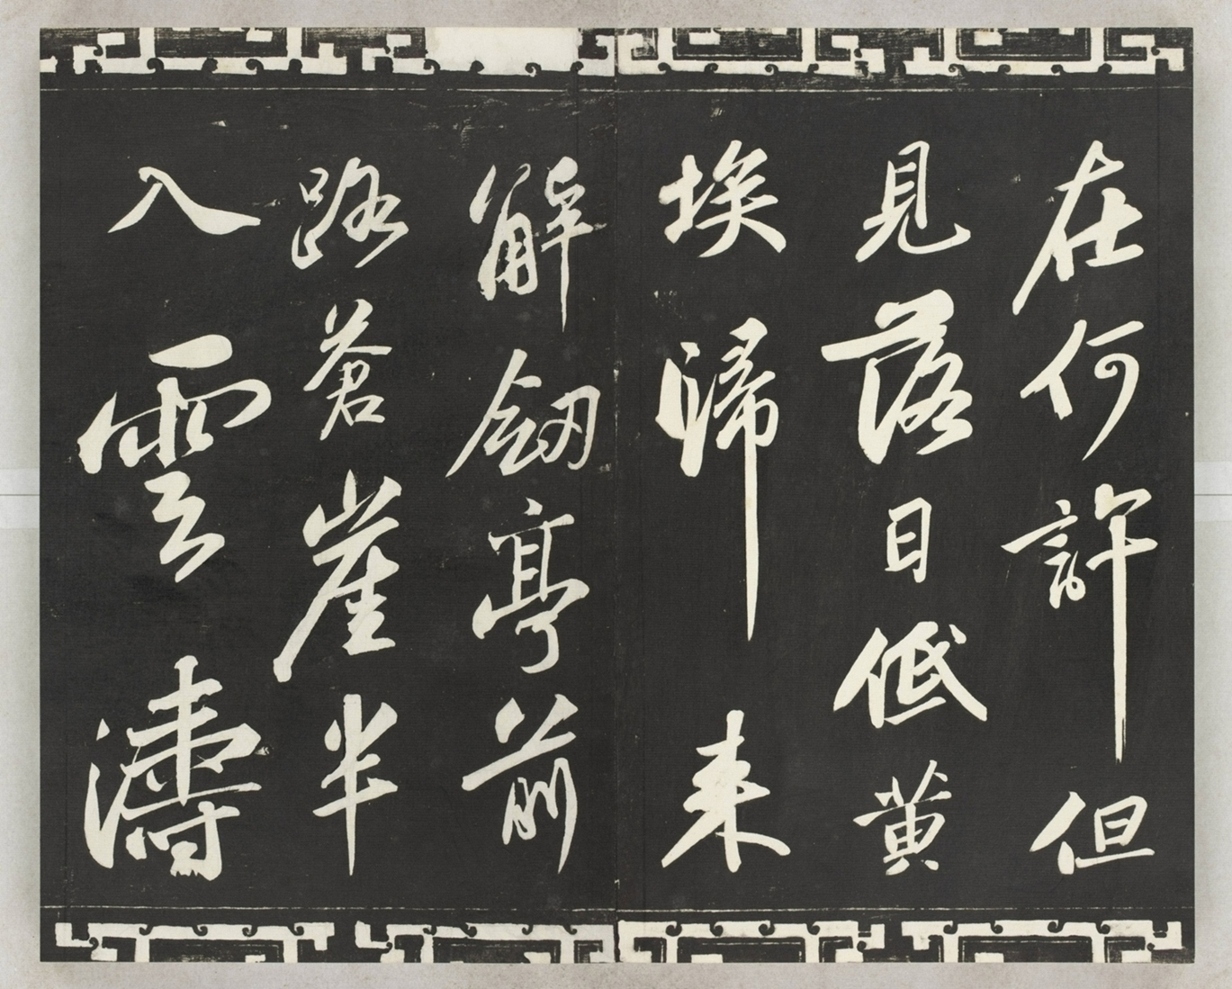 在何許但
見落日低黄
埃歸来
解劔亭前
路蒼崖半
入雲濤